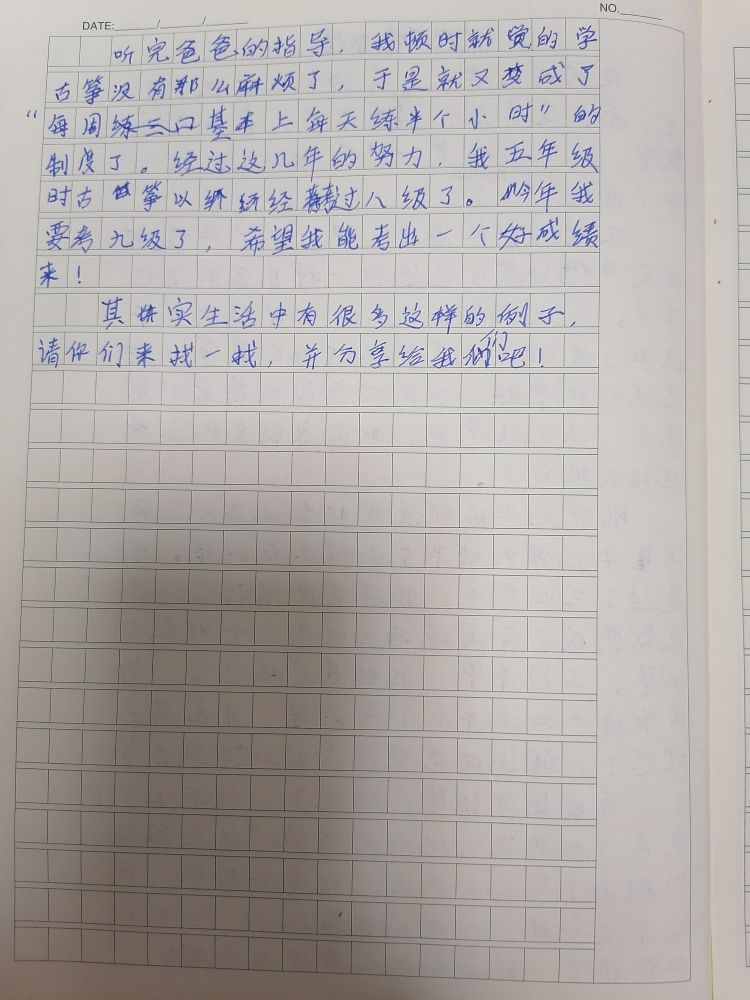 DATE: / / NO.
听完爸爸的指导，我顿时就觉的学
古筝没有那么麻烦了，于是就又变成了
“每周练三口基本上每天练半个小时”的
制度了。经过这几年的努力，我五年级
时古筝以经经过八级了。今年我
要考九级了，希望我能考出一个好成绩
来！
其实生活中有很多这样的例子，
请你们来找一找，并分享给我们吧！